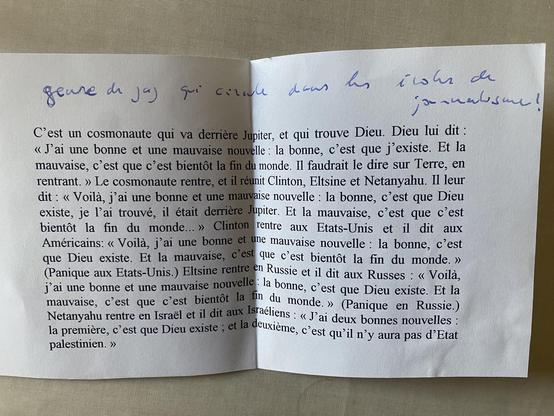 genre de jag qui circule dans les écoles de
journalisme !
C'est un cosmonaute qui va derrière Jupiter, et qui trouve Dieu. Dieu lui dit :
« J'ai une bonne et une mauvaise nouvelle : la bonne, c'est que j'existe. Et la
mauvaise, c'est que c'est bientôt la fin du monde. Il faudrait le dire sur Terre, en
rentrant. » Le cosmonaute rentre, et il réunit Clinton, Eltsine et Netanyahu. Il leur
dit : « Voilà, j'ai une bonne et une mauvaise nouvelle : la bonne, c'est que Dieu
existe, je l'ai trouvé, il était derrière Jupiter. Et la mauvaise, c'est que c'est
bientôt la fin du monde... » Clinton rentre aux Etats-Unis et il dit aux
Américains: « Voilà, j'ai une bonne et une mauvaise nouvelle : la bonne, c'est
que Dieu existe. Et la mauvaise, c'est que c'est bientôt la fin du monde. »
(Panique aux Etats-Unis.) Eltsine rentre en Russie et il dit aux Russes : « Voilà,
j'ai une bonne et une mauvaise nouvelle : la bonne, c'est que Dieu existe. Et la
mauvaise, c'est que c'est bientôt la fin du monde. » (Panique en Russie.)
Netanyahu rentre en Israël et il dit aux Israéliens : « J'ai deux bonnes nouvelles :
la première, c'est que Dieu existe ; et la deuxième, c'est qu'il n'y aura pas d'Etat
palestinien. »